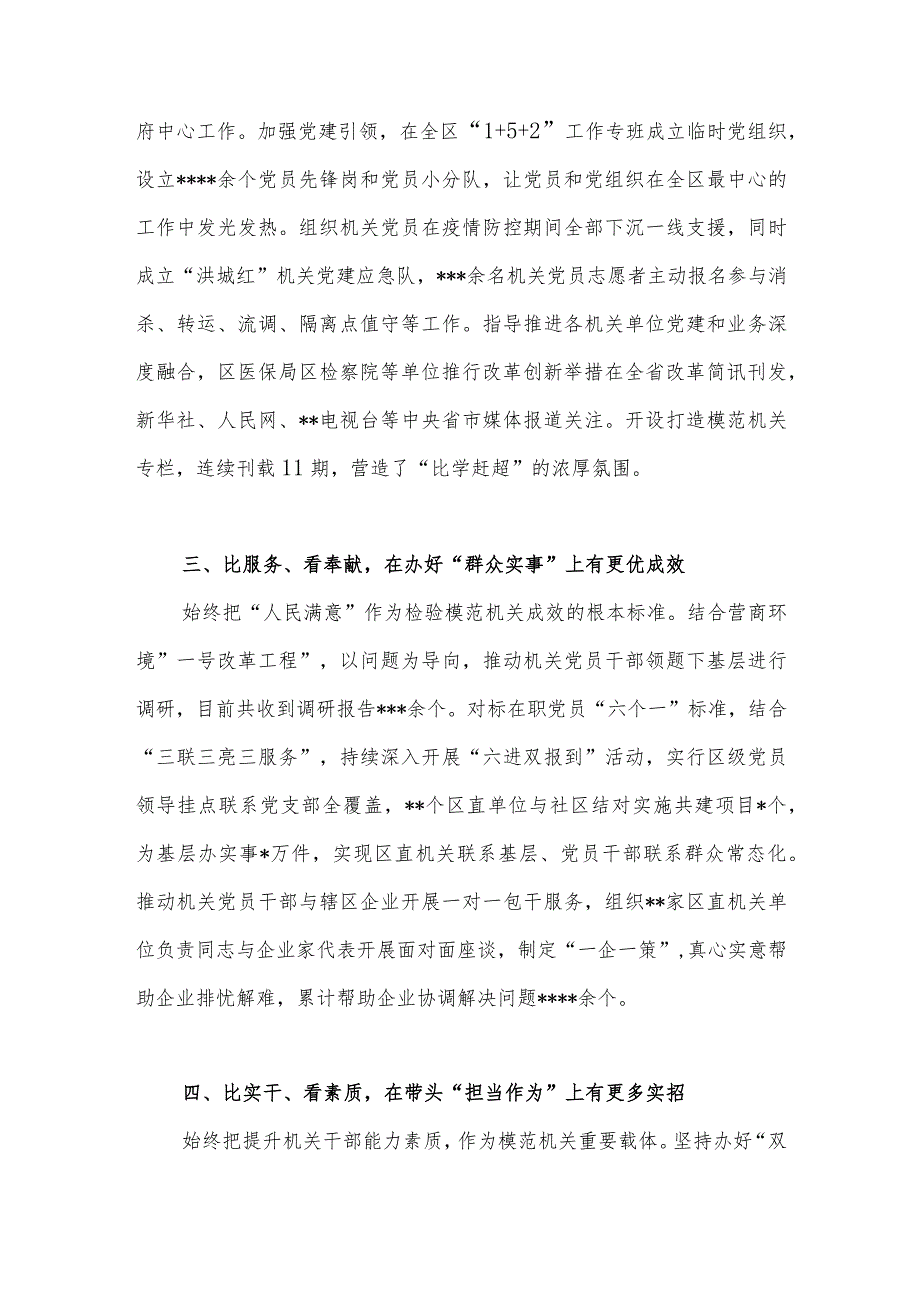 府中心工作。加强党建引领，在全区“1+5+2”工作专班成立临时党组织，
设立****余个党员先锋岗和党员小分队，让党员和党组织在全区最中心的
工作中发光发热。组织机关党员在疫情防控期间全部下沉一线支援，同时
成立“洪城红”机关党建应急队，***余名机关党员志愿者主动报名参与消
杀、转运、流调、隔离点值守等工作。指导推进各机关单位党建和业务深
度融合，区医保局区检察院等单位推行改革创新举措在全省改革简讯刊发，
新华社、人民网、**电视台等中央省市媒体报道关注。开设打造模范机关
专栏，连续刊载11期，营造了“比学赶超”的浓厚氛围。
三、比服务、看奉献，在办好“群众实事”上有更优成效
始终把“人民满意”作为检验模范机关成效的根本标准。结合营商环
境”一号改革工程”，以问题为导向，推动机关党员干部领题下基层进行
调研，目前共收到调研报告***余个。对标在职党员“六个一”标准，结合
“三联三亮三服务”，持续深入开展“六进双报到”活动，实行区级党员
领导挂点联系党支部全覆盖，**个区直单位与社区结对实施共建项目*个，
为基层办实事*万件，实现区直机关联系基层、党员干部联系群众常态化。
推动机关党员干部与辖区企业开展一对一包干服务，组织**家区直机关单
位负责同志与企业家代表开展面对面座谈，制定“一企一策”,真心实意帮
助企业排忧解难，累计帮助企业协调解决问题****余个。
四、比实干、看素质，在带头“担当作为”上有更多实招
始终把提升机关干部能力素质，作为模范机关重要载体。坚持办好“双